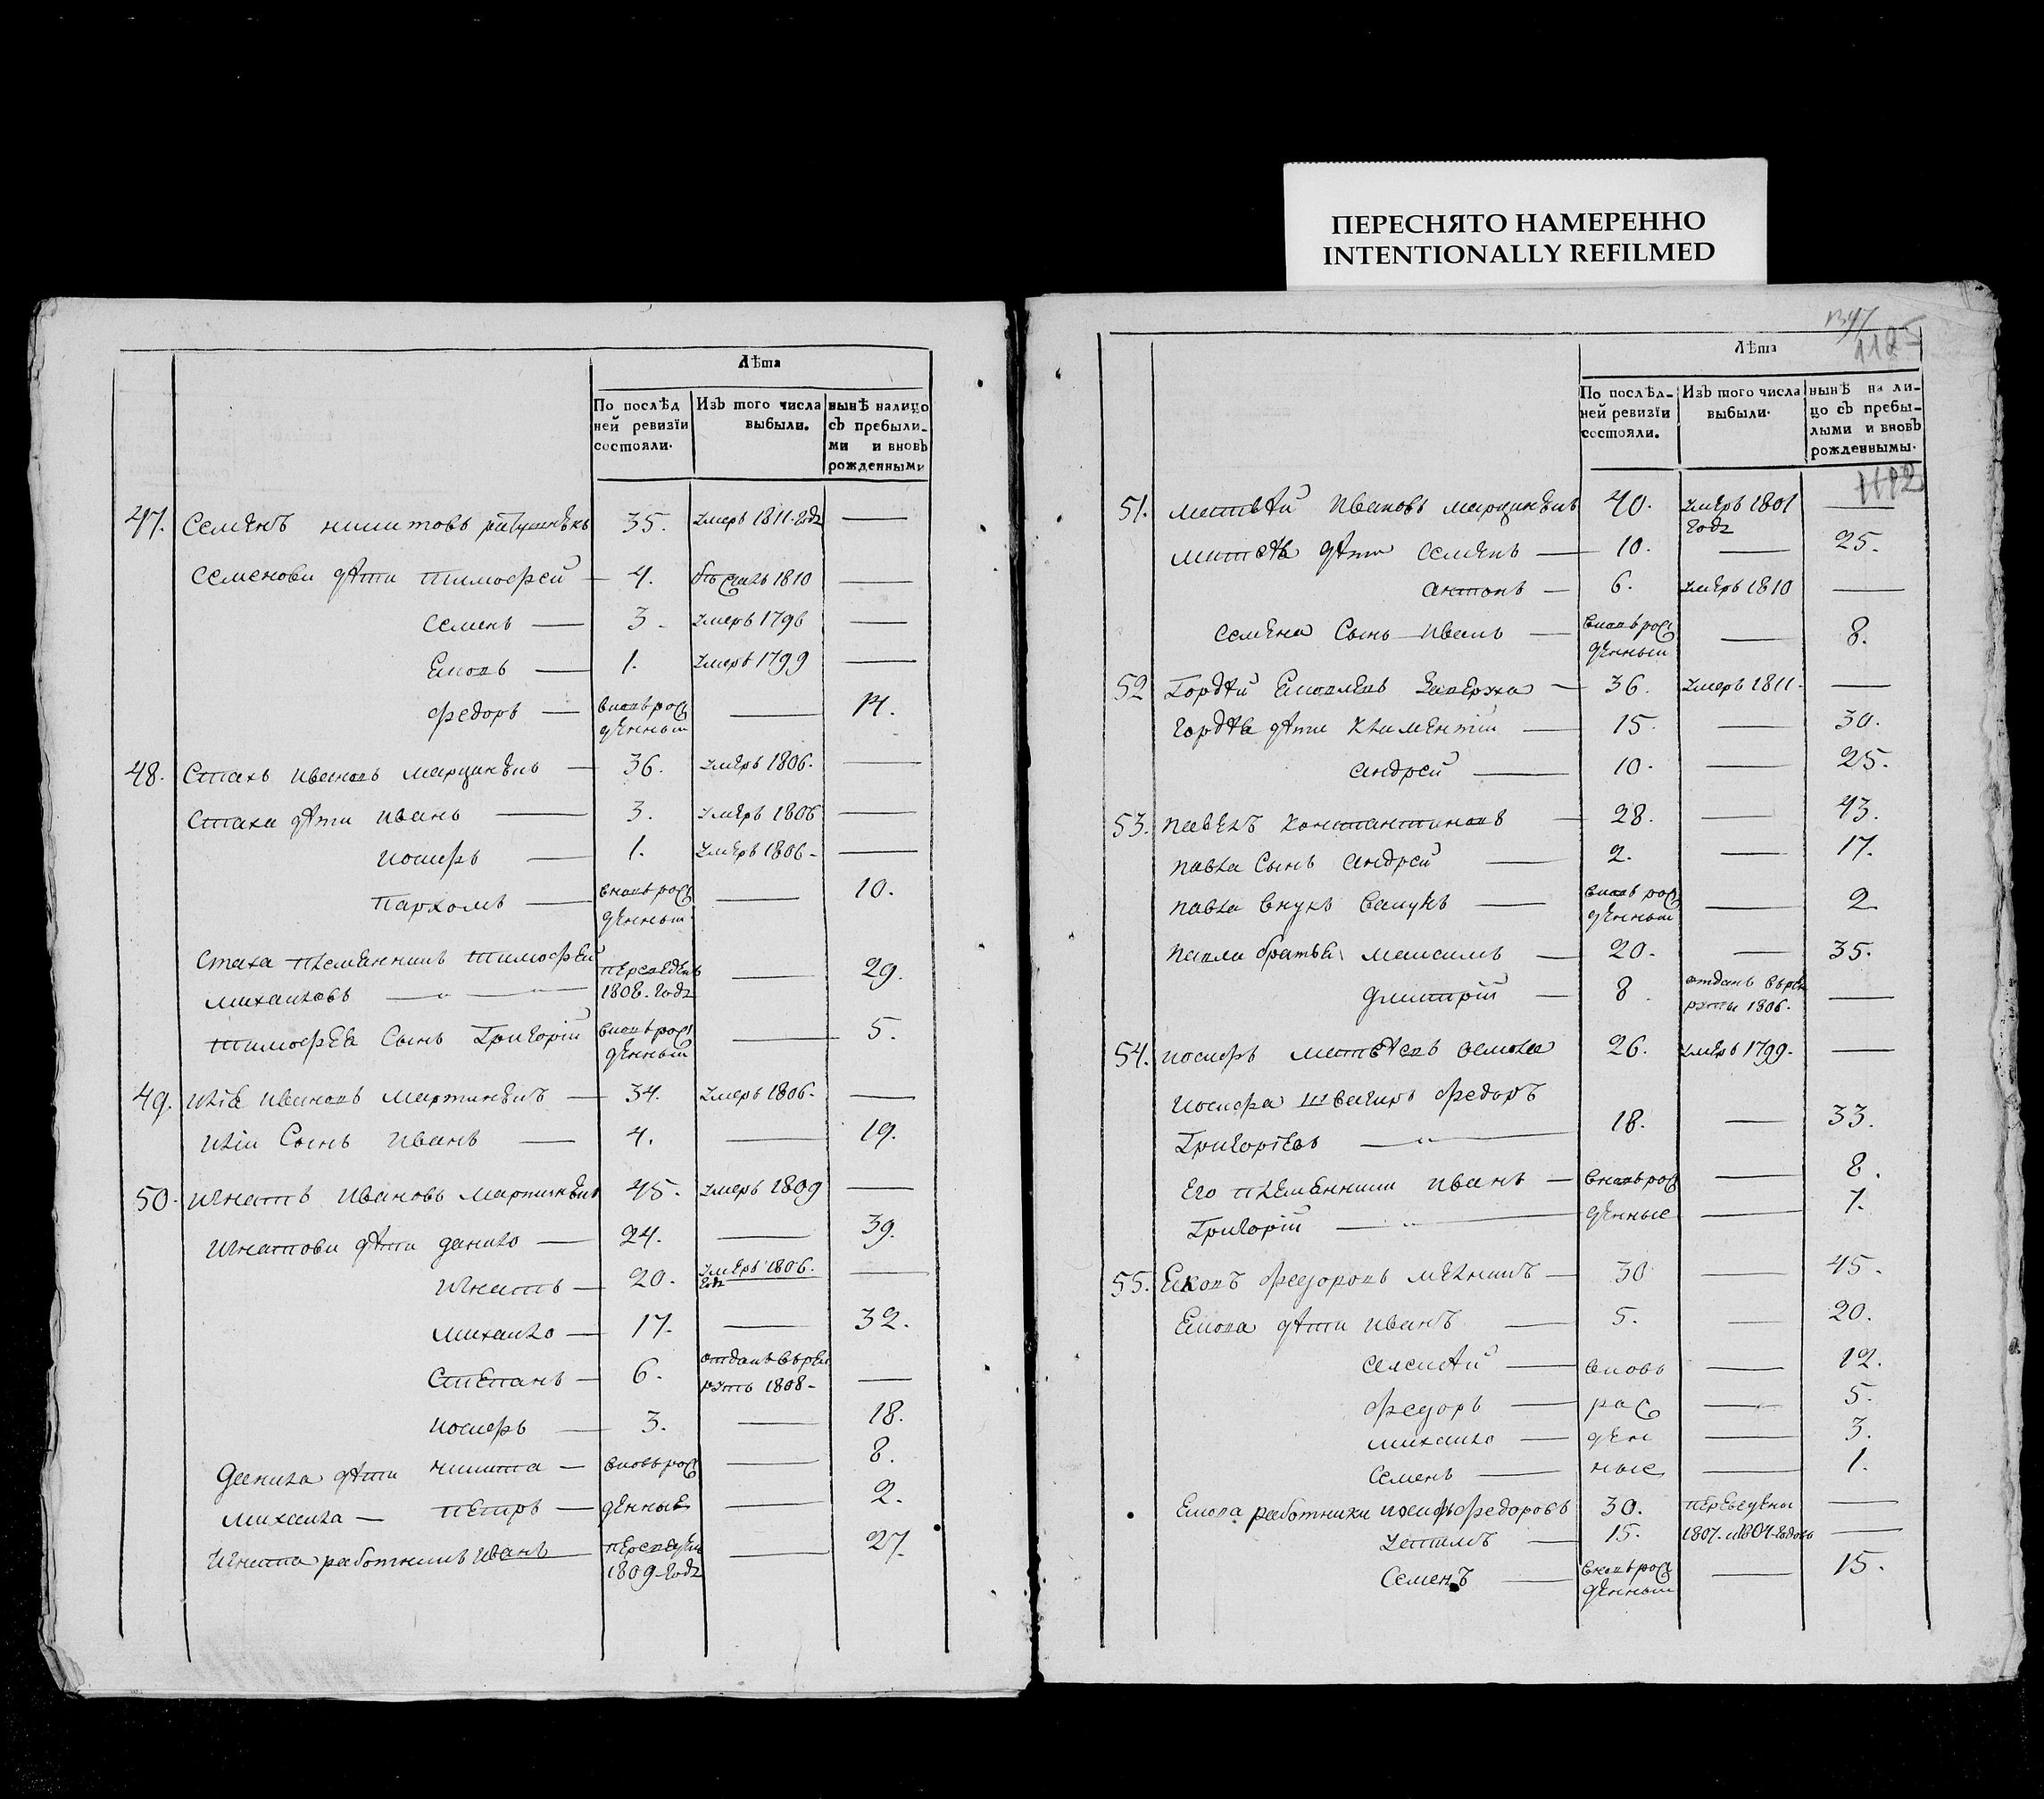 ПЕРЕСНЯТО НАМЕРЕННО
INTENTIONALLY REFILMED
Лѣта
По послѣд
ней ревизїи
состояли.
Изъ того числа
выбыли.
нынѣ налицо
съ пребыли-
ми и вновь
рожденными
47. Семенъ 35. умеръ 1811. года —
Семенови дѣти тимофей — 4. 1810 —
Семенъ — 3. умеръ 1796 —
Яковъ — 1. умеръ 1799 —
Федоръ — вновь рос — 14.
денный
48. Стахъ Ивановъ — 36. умеръ 1806. —
Стаха дѣти иванъ — 3. умеръ 1806 —
иосифъ — 1. умеръ 1806 - —
пархомъ — вновь рос — 10.
денный
Стаха племенникъ тимофей переведенъ — 29.
михайловъ — 1808. года
тимофея Сынъ Григорій вновь рос — 5.
денный
49. илія Ивановъ — 34. умеръ 1806. —
иліи Сынъ Иванъ — 4. — 19.
50. игнатъ Ивановъ 45. умеръ 1809 —
игнатови дѣти данило — 24. — 39.
игнатъ — 20. умеръ 1806. —
года
михайло — 17. — 32.
Степанъ — 6. отданъ въ рек —
руты 1808 -
иосифъ — 3. — 18.
данила дѣти никита — вновь рос — 8.
михаила — петръ — денные — 2.
игната работникъ Иванъ переведен — 27.
1809 года
1125
Лѣта
По послѣд-
ней ревизїи
состояли.
Изъ того числа
выбыли.
нынѣ на ли-
цо съ пребы-
лыми и вновь
рожденнымы.
1192
51. матвѣй Ивановъ 40. умеръ 1801 —
года
матвѣя дѣти семенъ — 10. — 25.
антонъ — 6. умеръ 1810 —
семена Сынъ Иванъ — вновь рос — 8.
денный
52 Гордѣй Яковлевъ — 36. умеръ 1811. —
Гордѣя дѣти климентій — 15. — 30.
андрей — 10. — 25.
53. павелъ константиновъ — 28. — 43.
павла Сынъ андрей — 2. — 17.
павла внукъ — вновь рос — 2
денный
павла братья максимъ — 20. — 35.
дмитрій — 8. отданъ въ рек —
руты 1806.
54. иосифъ матвѣевъ 26. умеръ 1799. —
Иосифа швагиръ Федоръ
Григоріевъ — 18. — 33.
Его племенники иванъ — вновь рос — 8.
Григорій — денные — 7.
55. Яковъ Федоровъ — 30 — 45.
Якова дѣти иванъ — 5. — 20.
алексѣй — вновь — 12.
Федоръ — рос — 5.
михайло — ден — 3.
семенъ — ные — 1.
Якова работники иосифъ Федоровъ 30. переведены —
— 15. 1807. и 1804. годовъ —
Семенъ — вновь рос — 15.
денный